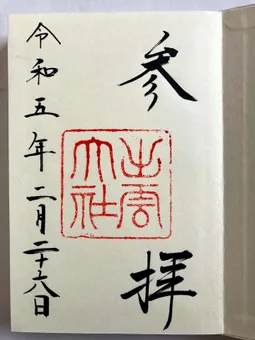 参拝
出雲大社
令和五年二月二十六日